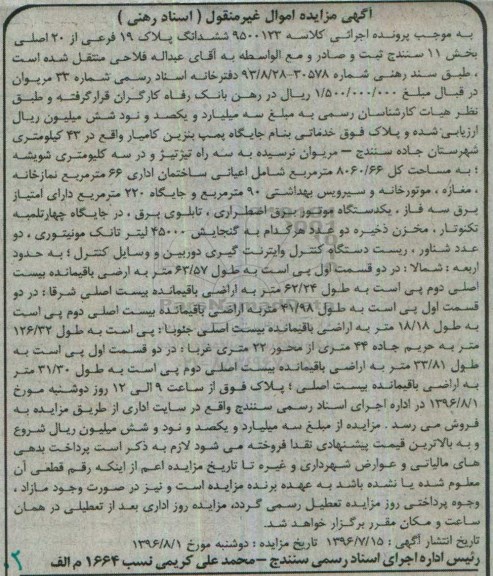 آگهی مزایده اموال غیرمنقول ( اسناد رهنی )
به موجب پرونده اجرائی کلاسه ۹۵۰۰۱۲۳ ششدانگ پلاک ۱۹ فرعی از ۲۰ اصلی
بخش ۱۱ سنندج ثبت و صادر و مع الواسطه به آقای عبداله فلاحی منتقل شده است
، طبق سند رهنی شماره ۳۰۵۷۸–۹۳/۸/۲۸ دفترخانه اسناد رسمی شماره ۳۳ مریوان
در قبال مبلغ ۱/۵۰۰/۰۰۰/۰۰۰ ریال در رهن بانک رفاه کارگران قرارگرفته و طبق
نظر هیات کارشناسان رسمی به مبلغ سه میلیارد و یکصد و نود شش میلیون ریال
ارزیابی شده و پلاک فوق خدماتی بنام جایگاه پمپ بنزین کامیار واقع در ۴۳ کیلومتری
شهرستان جاده سنندج – مریوان نرسیده به سه راه تیژتیژ و در سه کلیومتری شویشه
؛ به مساحت کل ۸۰۶۰/۶۶ مترمربع شامل اعیانی ساختمان اداری ۶۶ مترمربع نمازخانه
، مغازه ، موتورخانه و سیرویس بهداشتی ۹۰ مترمربع و جایگاه ۲۲۰ مترمربع دارای امتیاز
برق سه فاز ، یکدستگاه موتور برق اضطراری ، تابلوی برق ، در جایگاه چهارتلمبه
تکنوتار ، مخزن ذخیره دو عدد هرکدام به گنجایش ۴۵۰۰۰ لیتر تانک مونیتوری ، دو
عدد شناور ، ریست دستگاه کنترل وایترنت گیری دوربین و وسایل کنترل ؛ به حدود
اربعه : شمالا : در دو قسمت اول پی است به طول ۶۳/۵۷ متر به ارضی باقیمانده بیست
اصلی دوم پی است به طول ۶۲/۲۴ متر به اراضی باقیمانده بیست اصلی شرقا : در دو
قسمت اول پی است به طول ۴۱/۹۸ متربه اراضی باقیمانده بیست اصلی دوم پی است
به طول ۱۸/۱۸ متر به اراضی باقیمانده بیست اصلی جنوبا : پی است به طول ۱۲۶/۳۲
متر به حریم جاده ۴۴ متری از محور ۲۲ متری غربا : در دو قسمت اول پی است به
طول ۳۳/۸۱ متر به اراضی باقیمانده بیست اصلی دوم پی است به طول ۳۱/۳۰ متر
به اراضی باقیمانده بیست اصلی ؛ پلاک فوق از ساعت ۹ الی ۱۲ روز دوشنبه مورخ
۱۳۹۶/۸/۱ در اداره اجرای اسناد رسمی سنندج واقع در سایت اداری از طریق مزایده به
فروش می رسد . مزایده از مبلغ سه میلیارد و یکصد و نود و شش میلیون ریال شروع
و به بالاترین قیمت پیشنهادی نقدا فروخته می شود لازم به ذکر است پرداخت بدهی
های مالیاتی و عوارض شهرداری و غیره تا تاریخ مزایده اعم از اینکه رقم قطعی آن
معلوم شده یا نشده باشد به عهده برنده مزایده است و نیز در صورت وجود مازاد ،
وجوه پرداختی روز مزایده تعطیل رسمی گردد، مزایده روز اداری بعد از تعطیلی در همان
ساعت و مکان مقرر برگزار خواهد شد.
تاریخ انتشار آگهی : ۱۳۹۶/۷/۱۵  تاریخ مزایده : دوشنبه مورخ ۱۳۹۶/۸/۱
رئیس اداره اجرای اسناد رسمی سنندج –محمد علی کریمی نسب ۱۶۶۴ م الف